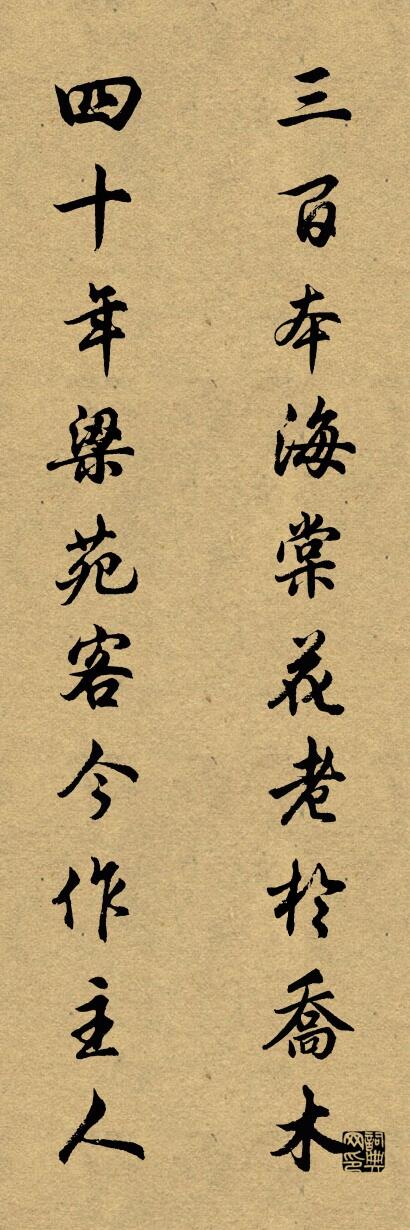 三百本海棠花老於喬木
四十年梁苑客今作主人
詞典網印